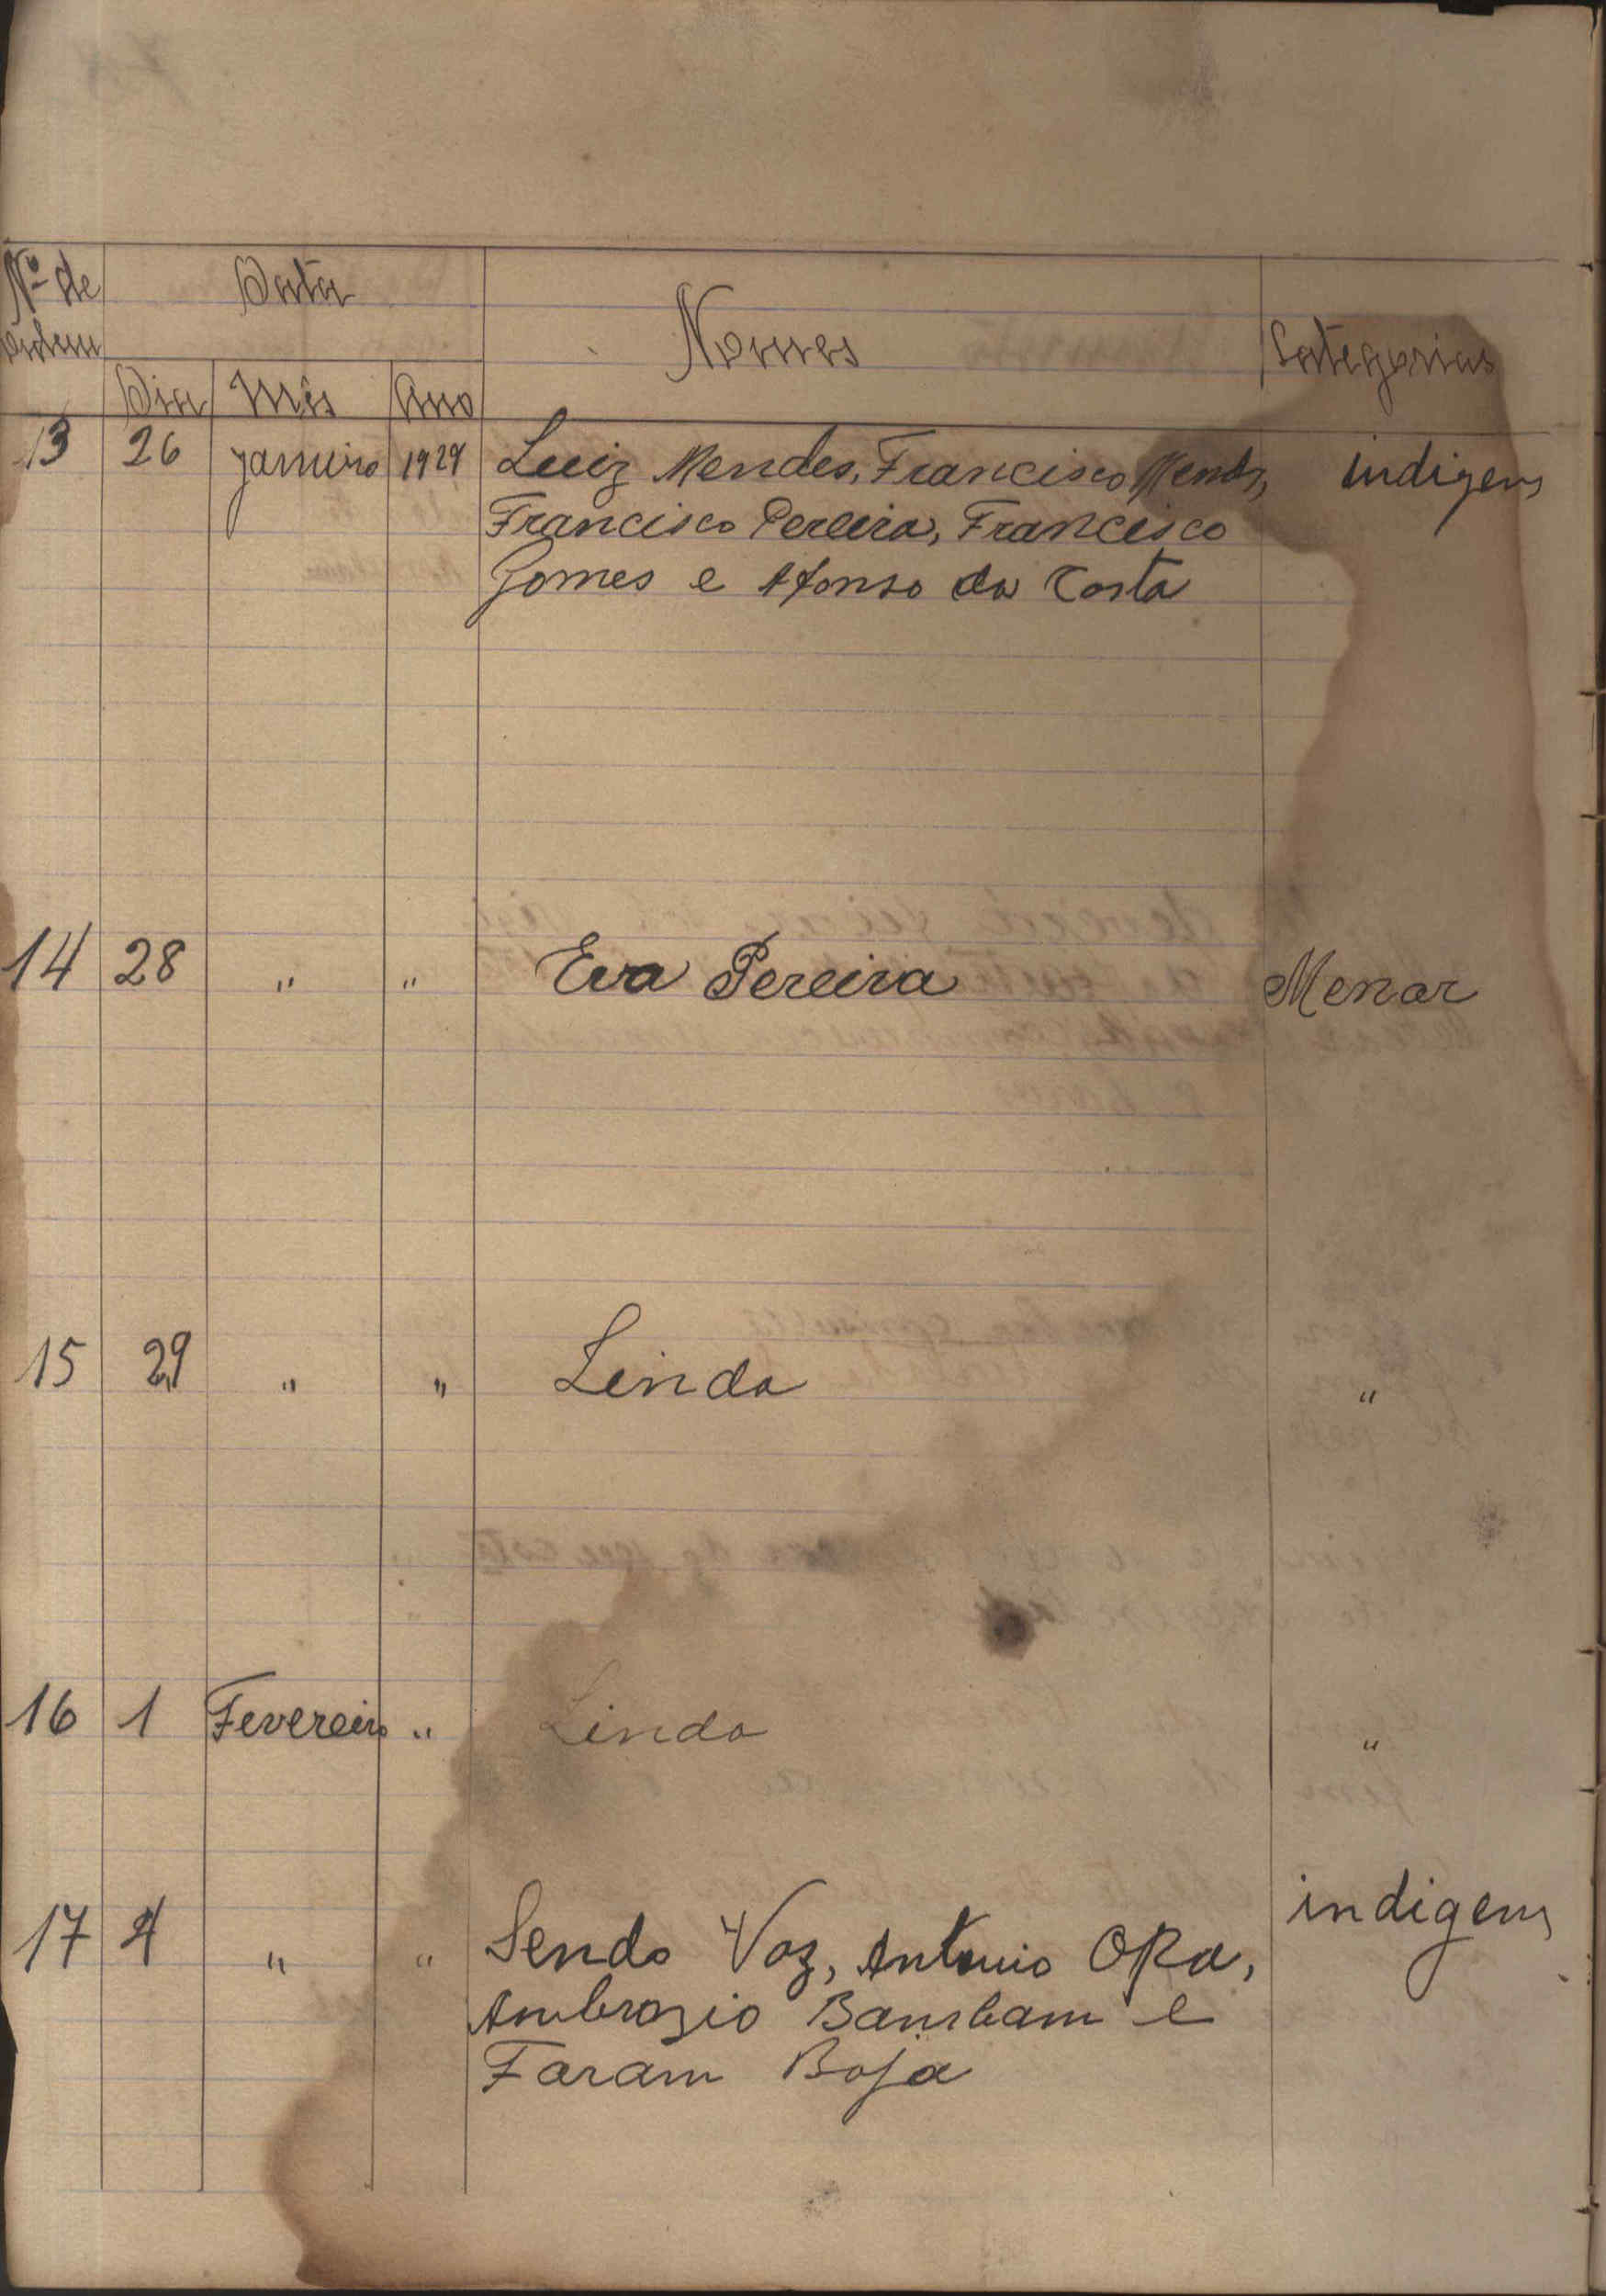 Nº de
ordem
Data
Nomes
Categorias
Dia Mês Ano
13 26 janeiro 1929 Luiz Mendes, Francisco Mends, indigens
Francisco Pereira, Francisco
Gomes e Afonso da Costa
14 28 " " Eva Pereira Menor
15 29 " " Linda "
16 1 Fevereiro " Linda "
17 4 " " Sendo Vaz, Antonio Opa, indigens
Ambrozio Bambam e
Faram Boja